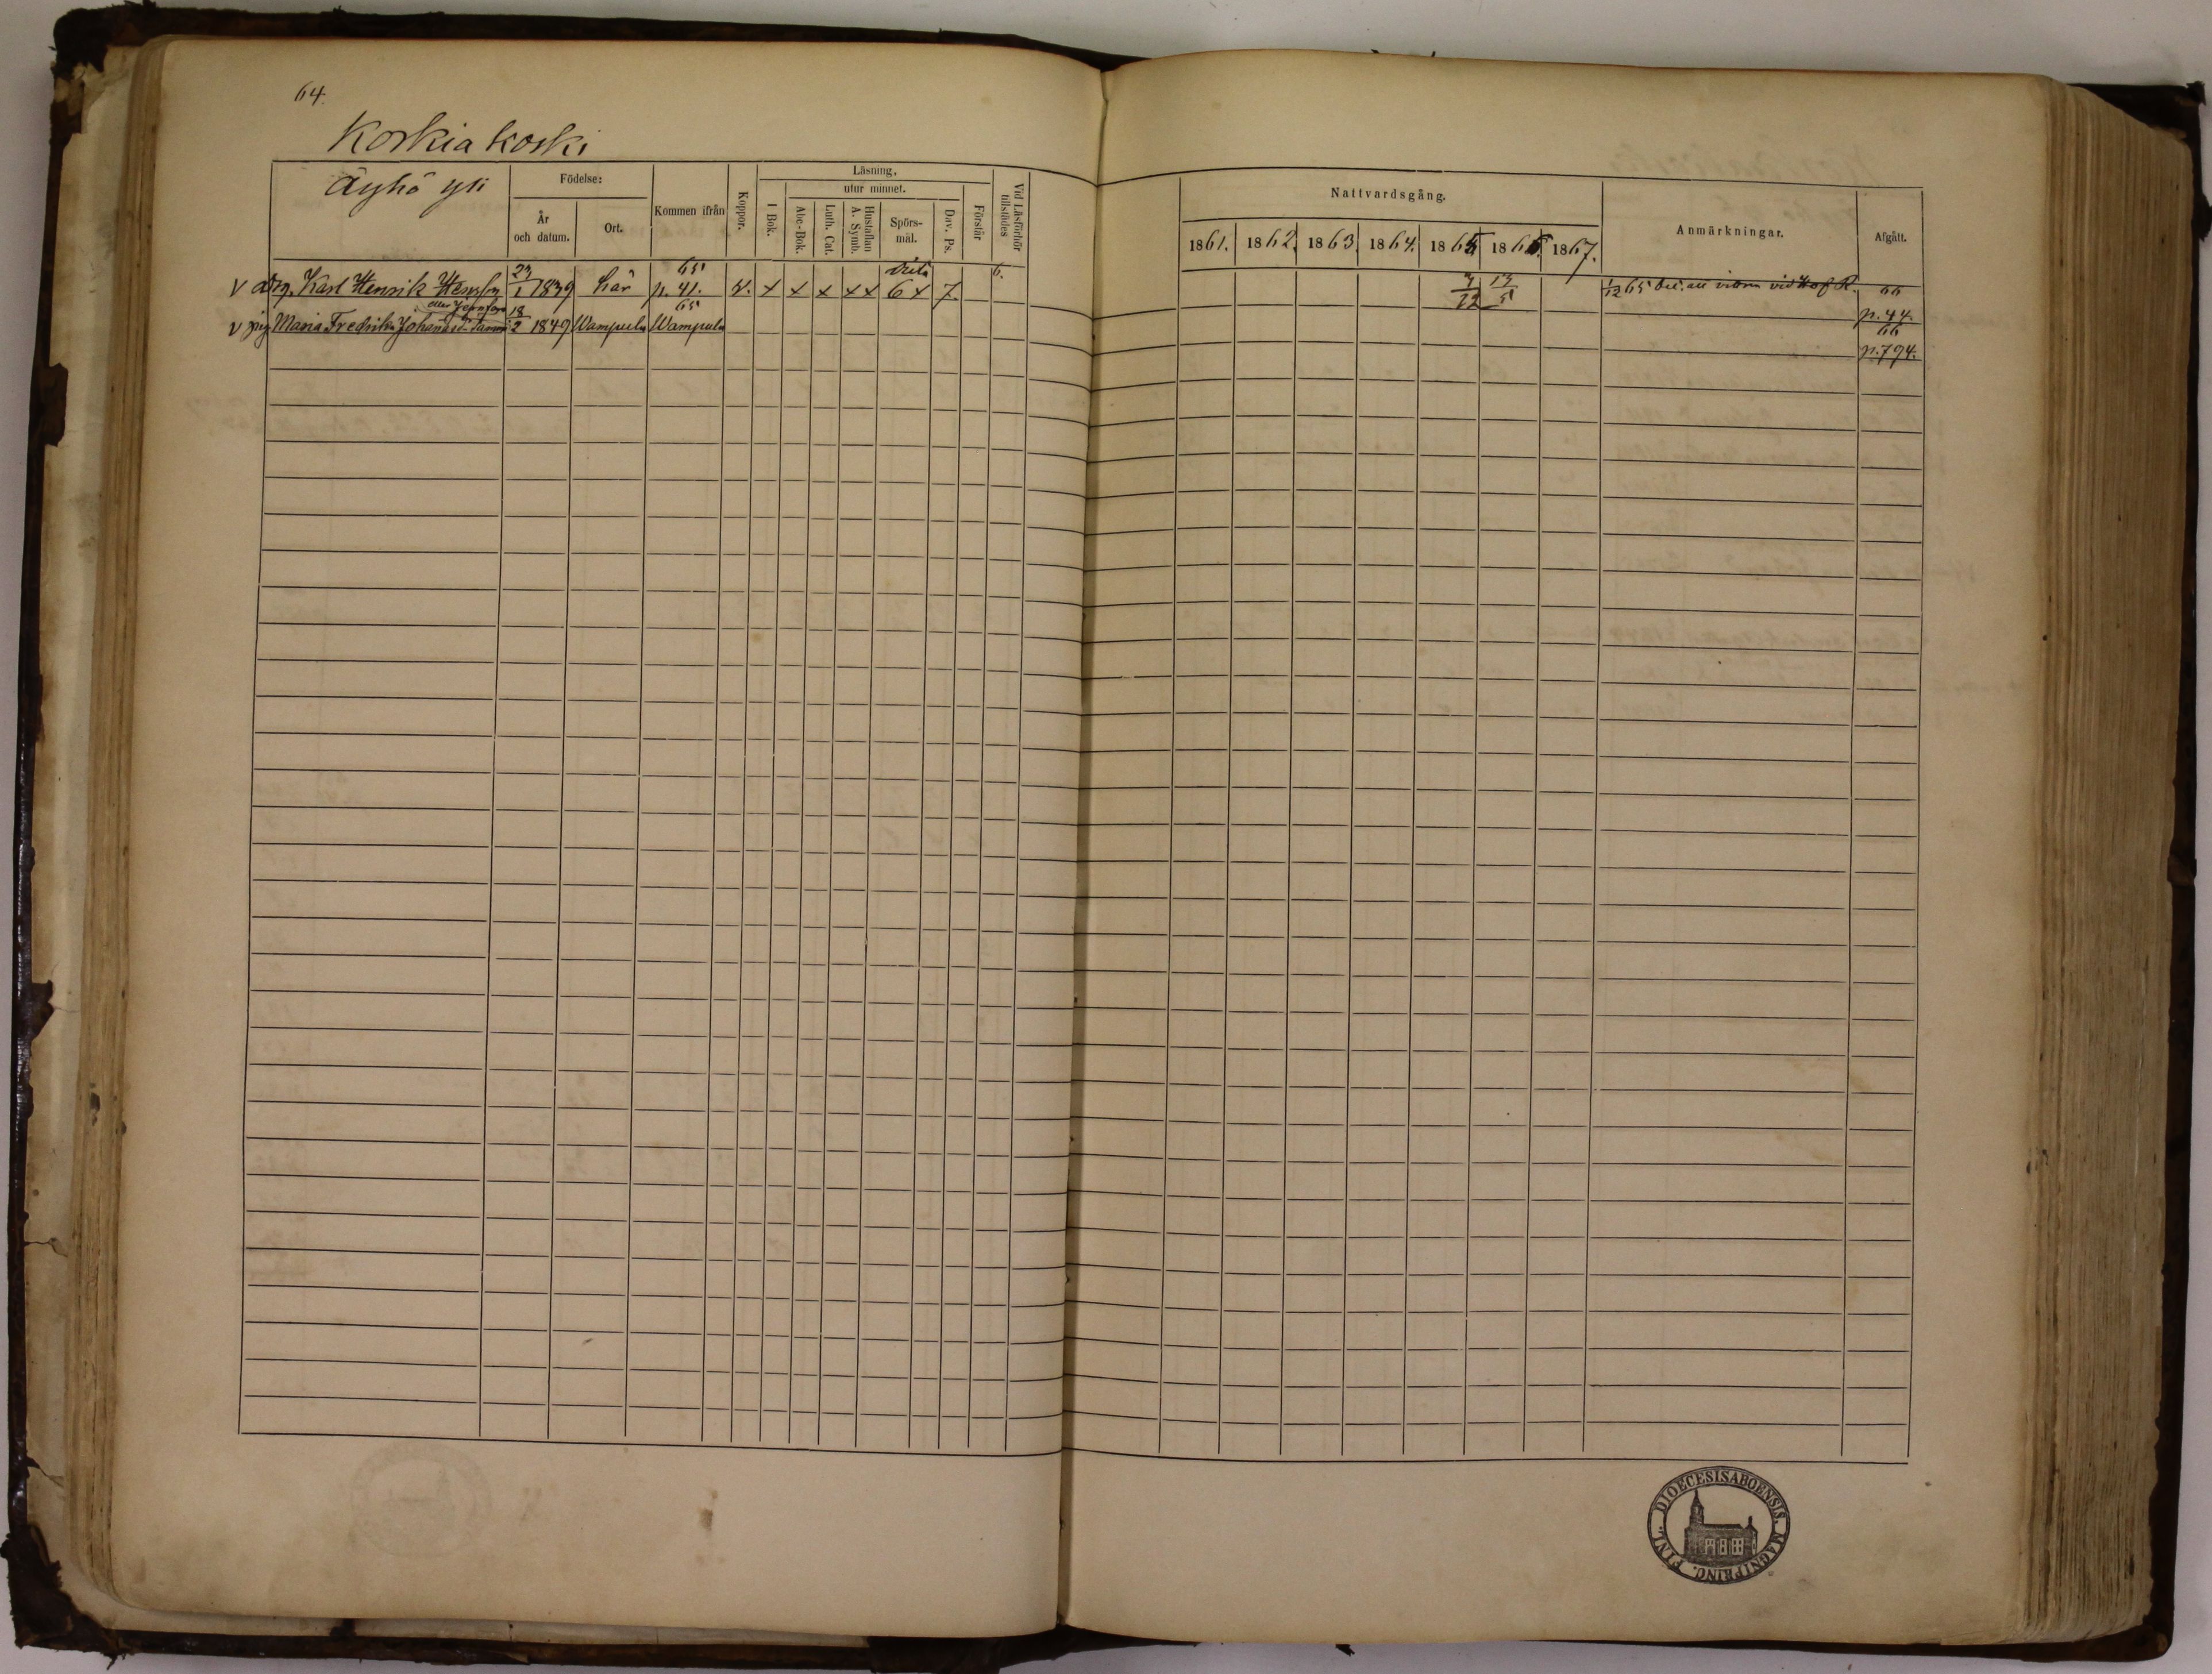 64.
Koskia koski
Äyhö yli
Födelse:
År och datum.
Ort.
Kommen ifrån
Koppor.
Läsning,
I Bok.
utur minnet.
Abc-Bok.
Luth. Cat.
Hustaflan A. Symb.
Spörs-mål.
Dav. Ps.
Förstår
Vid Läsförhör tillstädes
Nattvardsgång.
1861. 1862. 1863. 1864. 1865 1866. 1867.
Anmärkningar.
Afgått.
v drg. Karl Henrik Henrsson 23/1 1839 här 65 p. 41. v. x x x x x 6 x 7. 6. 3/12 13/5 1/12 65 vid Hof R. 66 p. 44.
eller Jernfors
v pig Maria Fredrika Johansd. 18/2 1849 Wampula 65 Wampula 66 p. 794.
DIOECESIS ABOENSIS. MAGNI PRINC. FINL.